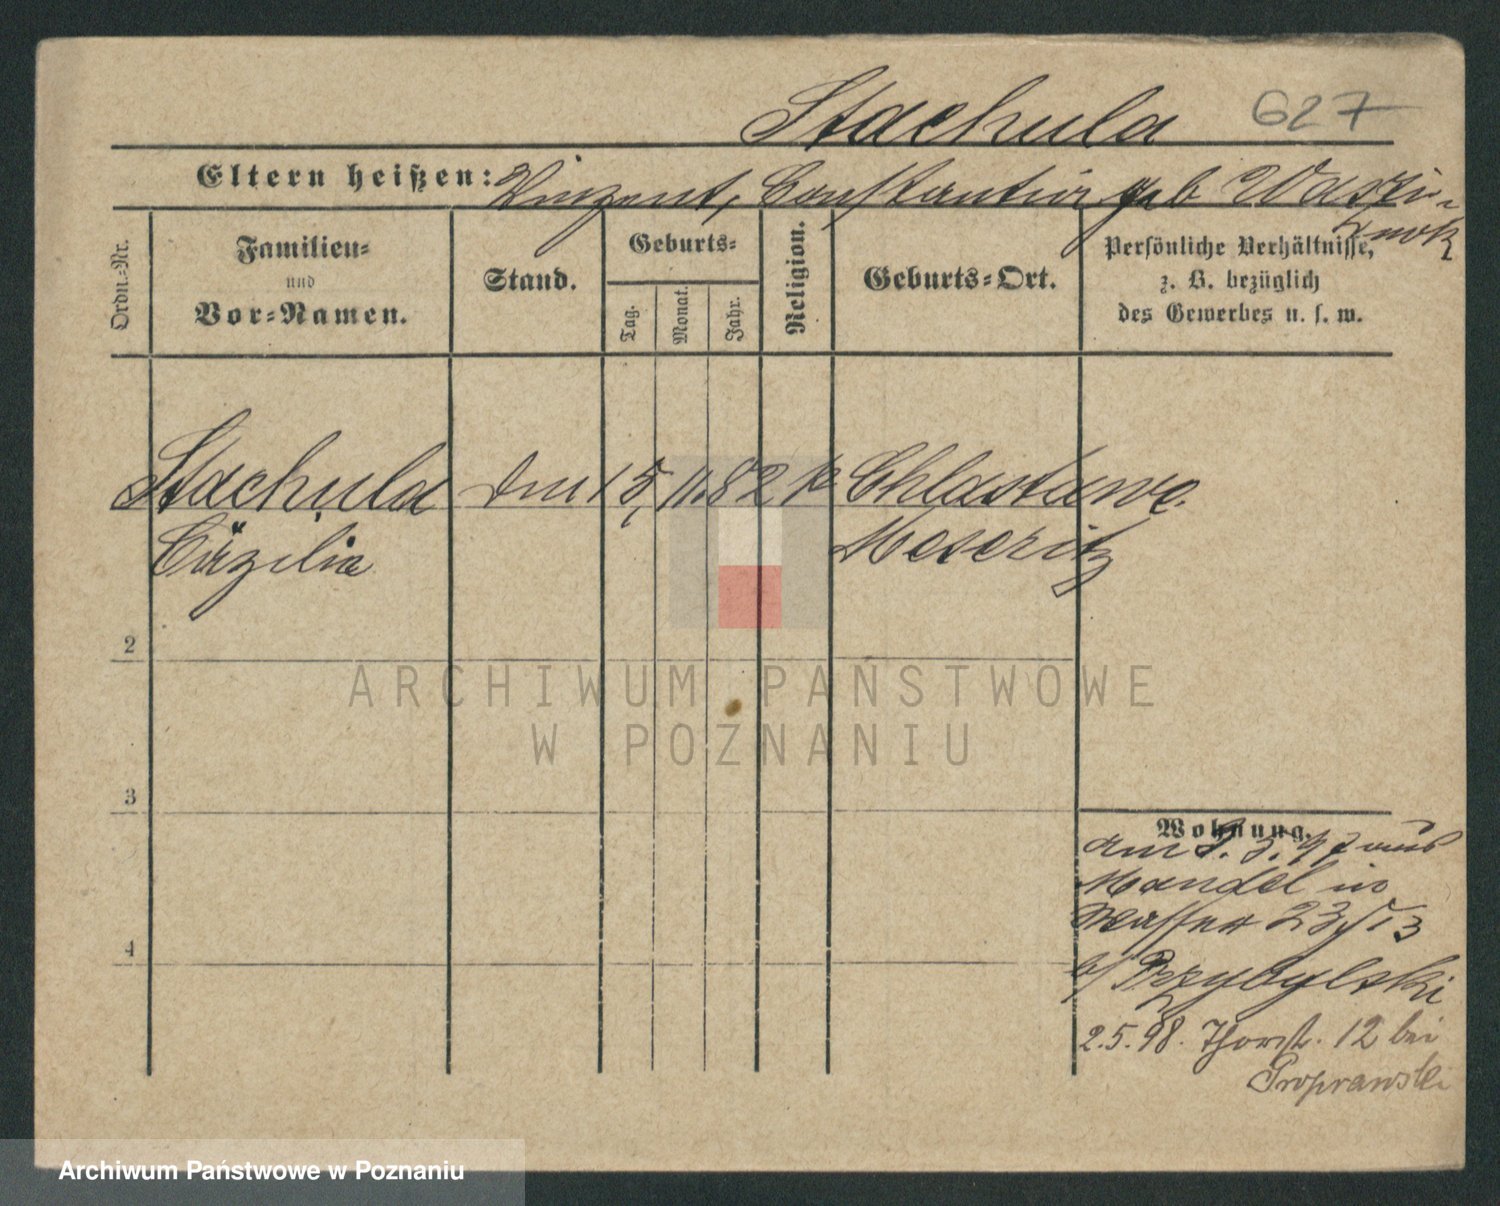 Stachula 627
Eltern heißen: Vinzent, Constantia geb
Ordn.-Nr.
Familien-
und
Vor-Namen.
Stand.
Geburts-
Tag.
Monat.
Jahr.
Religion.
Geburts-Ort.
Persönliche Verhältnisse,
z. B. bezüglich
des Gewerbes u. s. w.
Stachula 15. 11. 82 k Chlastawe
Cäzilia Meseritz
2
3
4
Wohnung.
am aus
Mandel in
Wasser 23/13
b/ Przybylski
2.5.98. Thorst. 12 bei
Propranski
ARCHIWUM PAŃSTWOWE
W POZNANIU
Archiwum Państwowe w Poznaniu